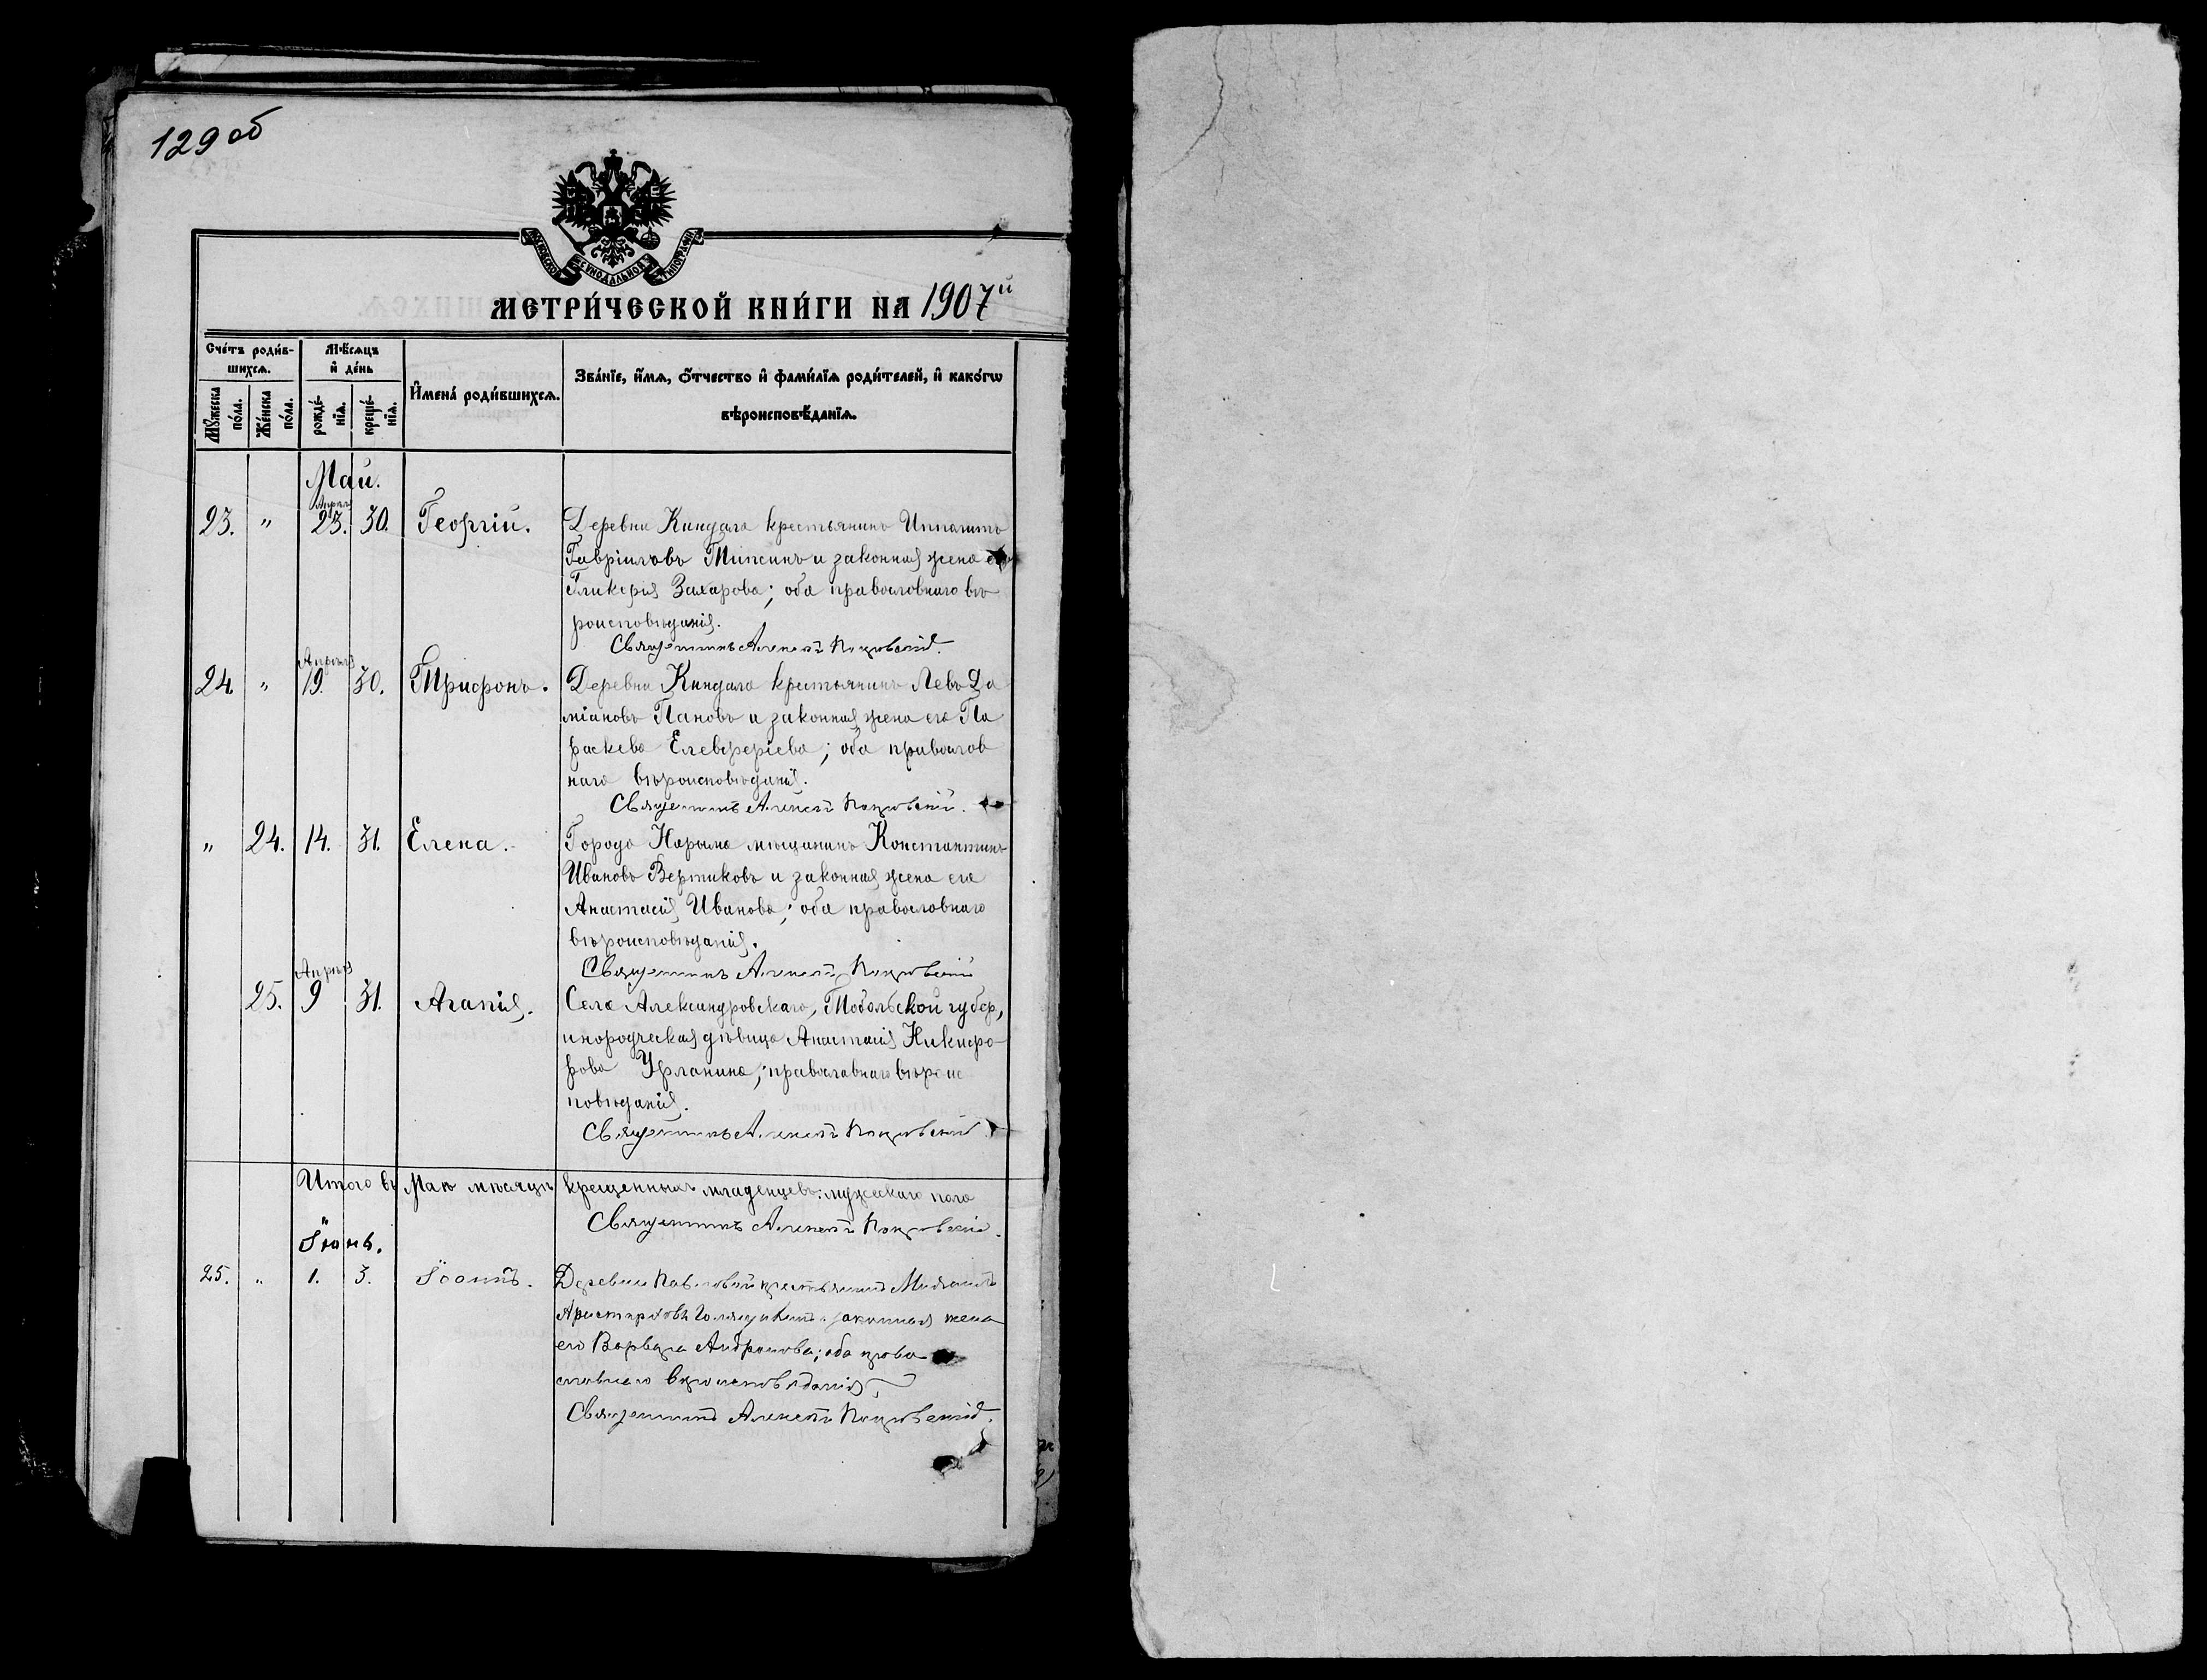 129 об
МОСКОВСКОЙ СѴНОДАЛЬНОЙ ТИПОГРАФІИ
МЕТРИ́ЧЕСКОЙ КНИ́ГИ НА 1907й
Сче́тъ роди́в-
шихсѧ.
Мѣ́сѧцъ
и҆ де́нь
Мꙋ́жеска
по́ла.
Же́нска
по́ла.
рожде́-
нїѧ.
креще́-
нїѧ.
И҆мена̀ роди́вшихсѧ.
Зва́нїе, и҆́мѧ, ѻ҆́тчество и҆ фами́лїѧ роди́телей, и҆ како́гѡ
вѣроисповѣ́данїѧ.
Май.
Апрѣл
23. " 23. 30. Георгій.
Деревни Киндала крестьянинъ Ипполитъ
Гавріиловъ Типсинъ и законная жена его
Гликерія Захарова; оба православнаго вѣ
роисповѣданія.
Священникъ Алексѣй Покровскій.
Апрѣля
24. " 19. 30. Трифонъ.
Деревни Киндала крестьянинъ Левъ Да
міановъ Пановъ и законная жена его Па
раскева Елевферіева; оба православ
наго вѣроисповѣданія.
Священникъ Алексѣй Покровскій.
" 24. 14. 31. Елена.
Города Нарыма мѣщанинъ Константинъ
Ивановъ Вертиковъ и законная жена его
Анастасія Иванова; оба православнаго
вѣроисповѣданія.
Священникъ Алексѣй Покровскій
Апрѣля
25. 9 31. Агапія.
Села Александровскаго, Тобольской губер,
инородческая дѣвица Анастасія Никифо-
рова Урланина; православнаго вѣроис
повѣданія.
Священникъ Алексѣй Покровскій
Итого въ Маѣ мѣсяцѣ крещенныхъ младенцевъ: мужескаго пола
Священникъ Алексѣй Покровскій.
Іюнь.
25. " 1. 3. Іоаннъ.
Деревни Павловой крестьянинъ Михаилъ
Аристарховъ законная жена
его Варвара Андронова; оба право
славнаго вѣроисповѣданія.
Священникъ Алексѣй Покровскій.